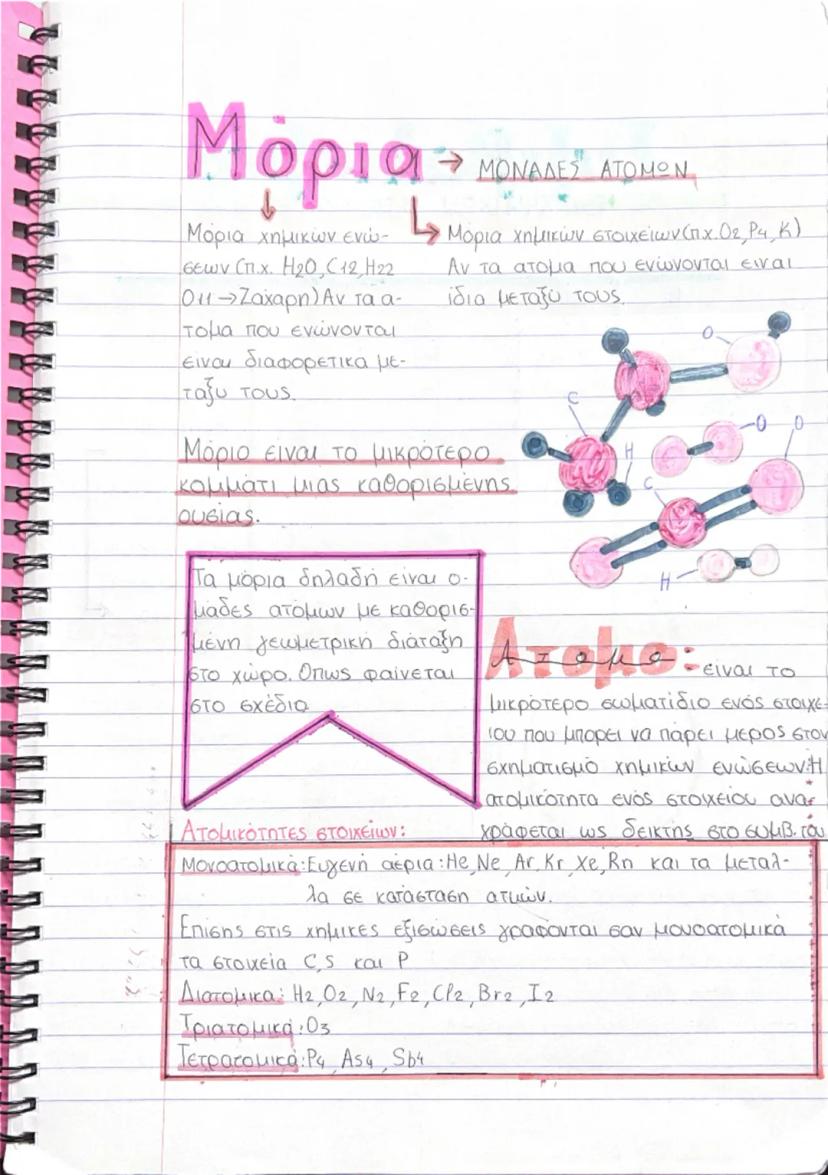 Μόρια → ΜΟΝΑΔΕΣ ΑΤΟΜΩΝ
Μόρια χημικών ενώ-
σεων (π.χ. H2O, C12, H22
O11 → Ζάχαρη) Αν τα α-
τομα που ενώνονται
είναι διαφορετικά με-
ταξύ τους.
Μόρια χημικών στοιχείων (π.χ. O2, P4, K)
Αν τα ατομα που ενώνονται ειναι
ίδια μεταξύ τους.
Μόριο είναι το μικρότερο
κομμάτι μιας καθορισμένης
ουσίας.
O
C
H
O
O
C
H
Τα μόρια δηλαδή είναι ο-
μάδες ατόμων με καθορισ-
μένη γεωμετρική διάταξη
στο χώρο. Οπως φαίνεται
στο σχέδιο
Άτομο: είναι το
μικρότερο σωματίδιο ενός στοιχε-
ίου που μπορεί να πάρει μερος στον
σχηματισμό χημικών ενώσεων. Η
ατομικότητα ενός στοιχείου ανα-
γράφεται ως δείκτης στο συμβ. του
Ατομικότητες στοιχείων:
Μονοατομικά: Ευγενή αέρια: He, Ne, Ar, Kr, Xe, Rn και τα μεταλ-
λα σε κατάσταση ατμών.
Επίσης στις χημικές εξισώσεις γράφονται σαν μονοατομικά
τα στοιχεία C, S και P
Διατομικά: H2, O2, N2, F2, Cl2, Br2, I2
Τριατομικά: O3
Τετρατομικά: P4, As4, Sb4